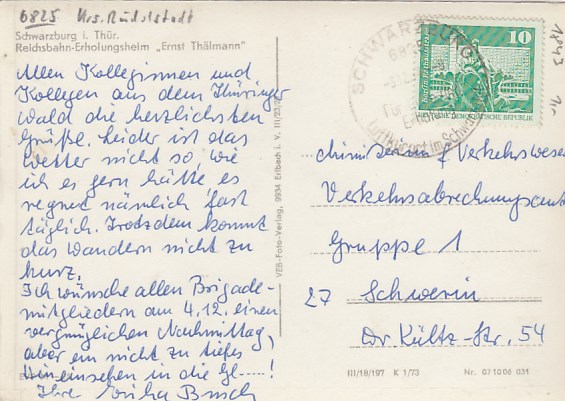 6825 Krs. Rudolstadt
Schwarzburg i. Thür.
Reichsbahn-Erholungsheim „Ernst Thälmann“
Allen Kolleginnen und
Kollegen aus dem Thüringer
wald die herzlichsten
Grüße. Leider ist das
Wetter nicht so, wie
ich es gern hätte, es
regnet nämlich fast
täglich. Trotzdem kommt
das Wandern nicht zu
kurz.
Ich wünsche allen Brigade-
mitgliedern am 4.12. einen
vergnüglichen Nachmittag,
aber ein nicht zu tiefes
Hineinsehen in die Gl-----!
Ihre Busch
VEB-Foto-Verlag, 9934 Erlbach i. V. III/23/
SCHWARZBURG
Luftkurort im Schwa
10
Berlin, Rathausstraße
DEMOKRATISCHE REPUBLIK
1843
Ministerium f. Verkehrswesen
Verkehrsabrechnungsamt
Gruppe 1
27 Schwerin
Dr Külz-Str. 54
III/18/197 K 1/73 Nr. 07 10 06 031